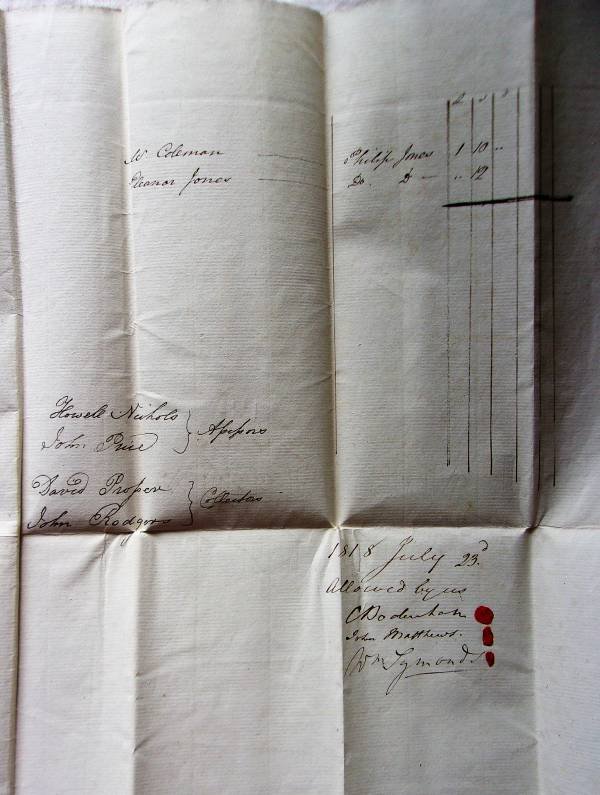 £ s d
Wm Coleman — Philip Jones 1 10 ..
Eleanor Jones — Do. Do — .. 12
Howell Nichols
John Price } Assessors
David Prosser
John Rodgers } Collectors
1818 July 23d
Allowed by us
C Bodenham
John Matthews.
Wm Symonds